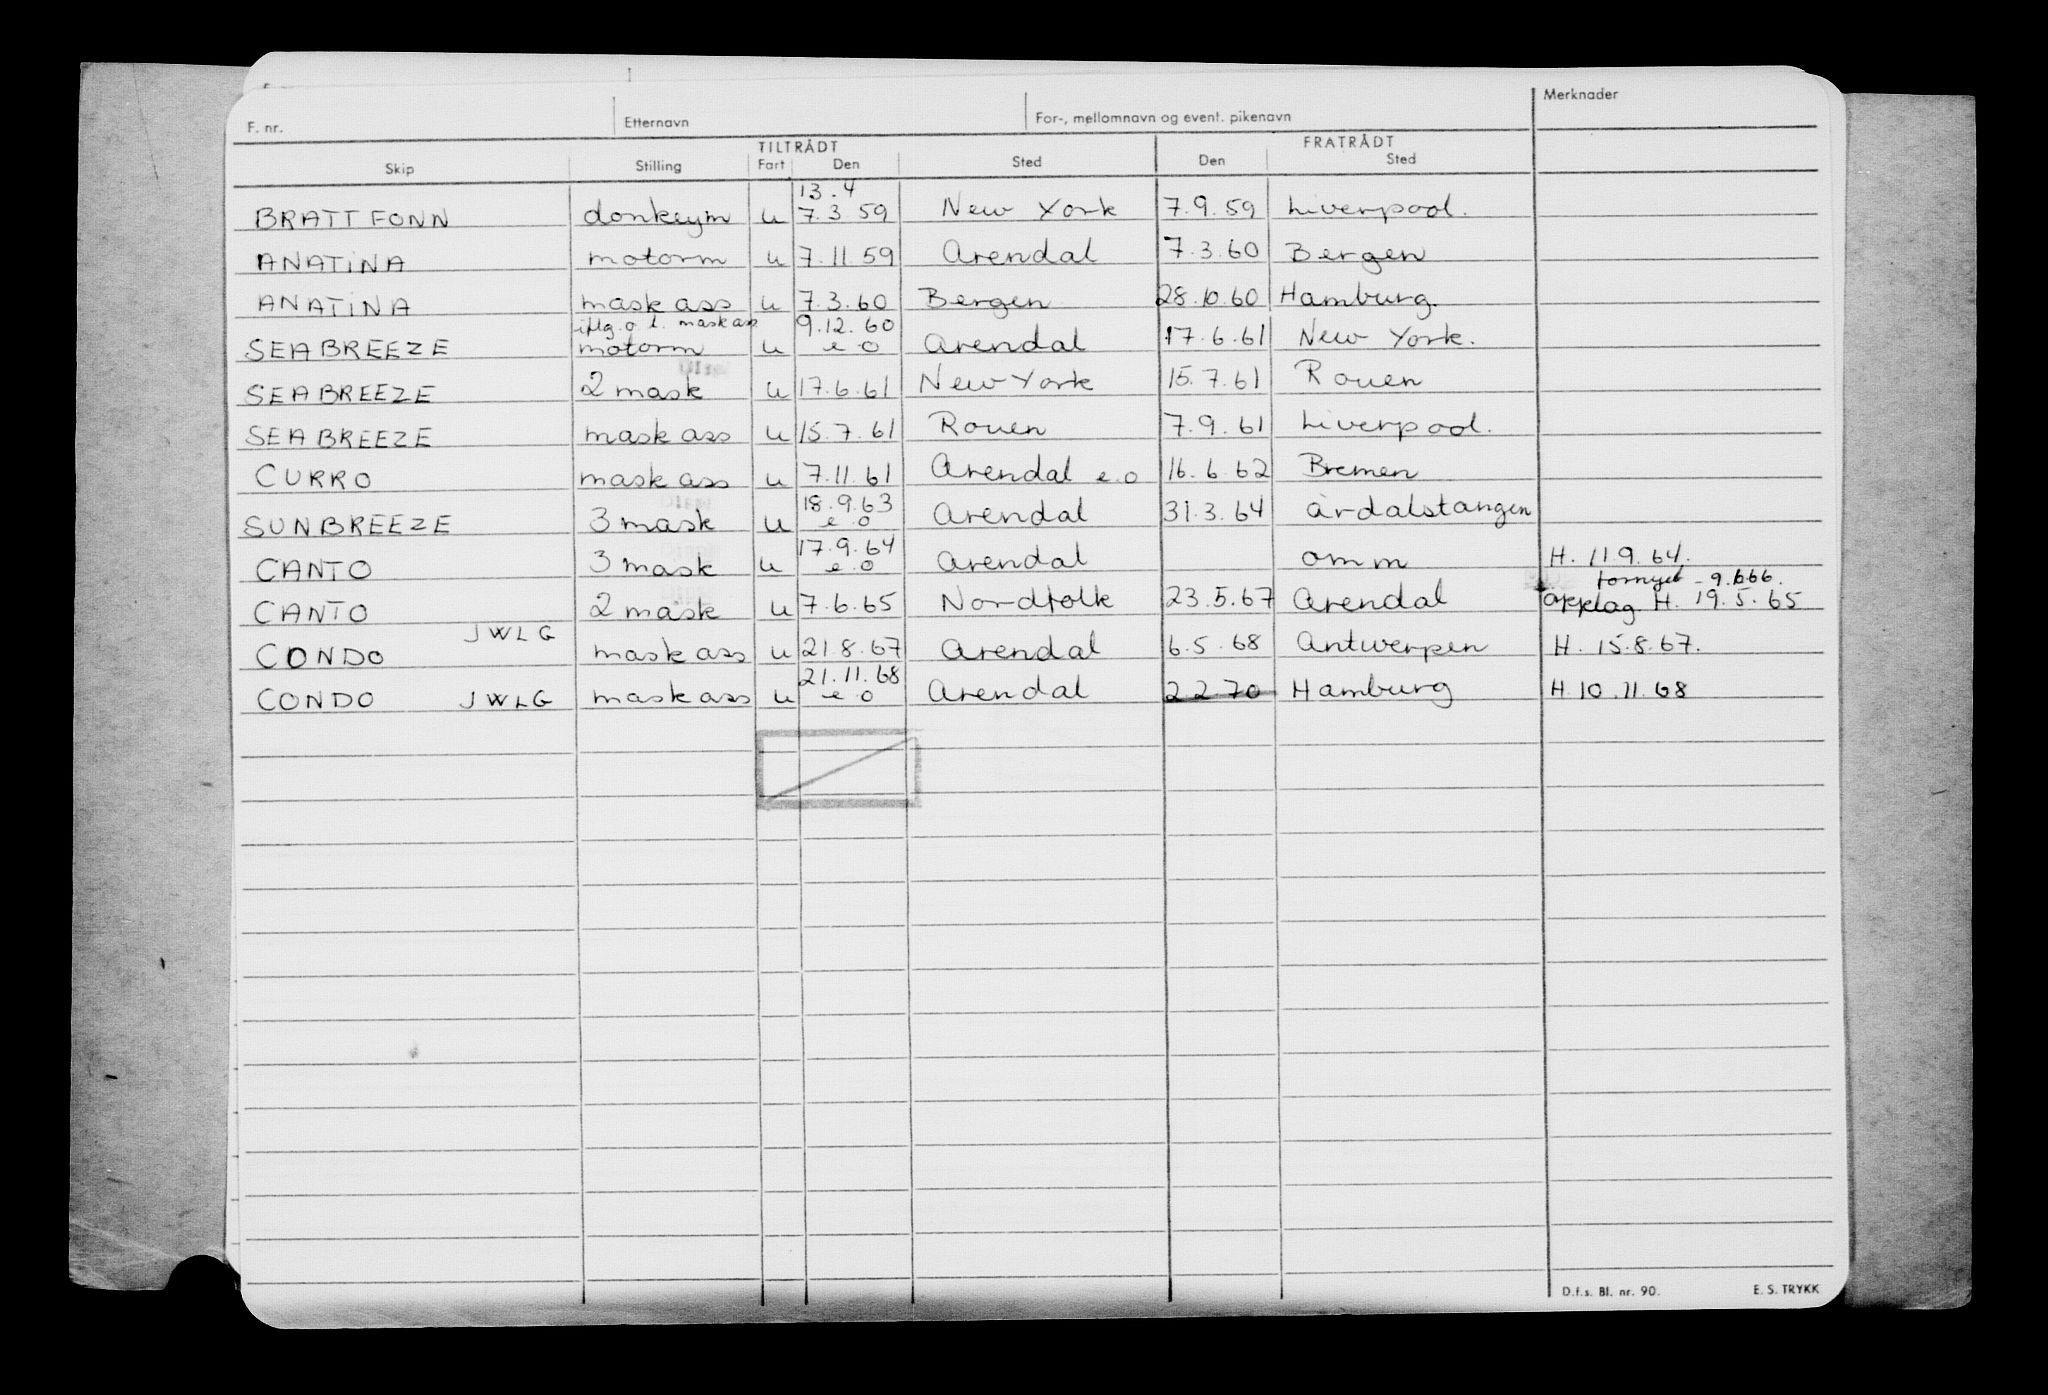 F. nr. Etternavn For-, mellomnavn og event. pikenavn Merknader
TILTRÅDT FRATRÅDT
Skip Stilling Fart Den Sted Den Sted
13.4
BRATTFONN donkeym u 7.3 59 New York 7.9.59 Liverpool.
ANATINA motorm u 7.11 59 Arendal 7.3.60 Bergen
ANATINA mask ass u 7.3.60 Bergen 28.10.60 Hamburg.
iflg. o l. mask ass 9.12.60
SEABREEZE motorm u e o Arendal 17.6.61 New York.
SEABREEZE 2 mask u 17.6.61 New York 15.7.61 Rouen
SEABREEZE mask ass u 15.7.61 Rouen 7.9.61 Liverpool.
CURRO mask ass u 7.11.61 Arendal e.o 16.6.62 Bremen
18.9.63
SUNBREEZE 3 mask u e o Arendal 31.3.64 Årdalstangen
17.9.64
CANTO 3 mask u e o Arendal omm H. 11.9.64.
fornyet - 9.666.
CANTO 2 mask u 7.6.65 Nordfolk 23.5.67 Arendal opplag H. 19.5.65
JWLG
CONDO mask ass u 21.8.67 Arendal 6.5.68 Antwerpen H. 15.8.67.
21.11.68
CONDO JWLG mask ass u e o Arendal 2.2.70 Hamburg H. 10.11.68
D.f.s. Bl. nr. 90. E. S. TRYKK